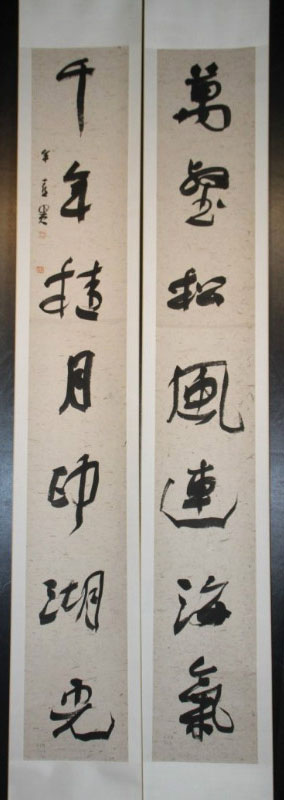 萬壑松風連海氣
千年桂月印湖光